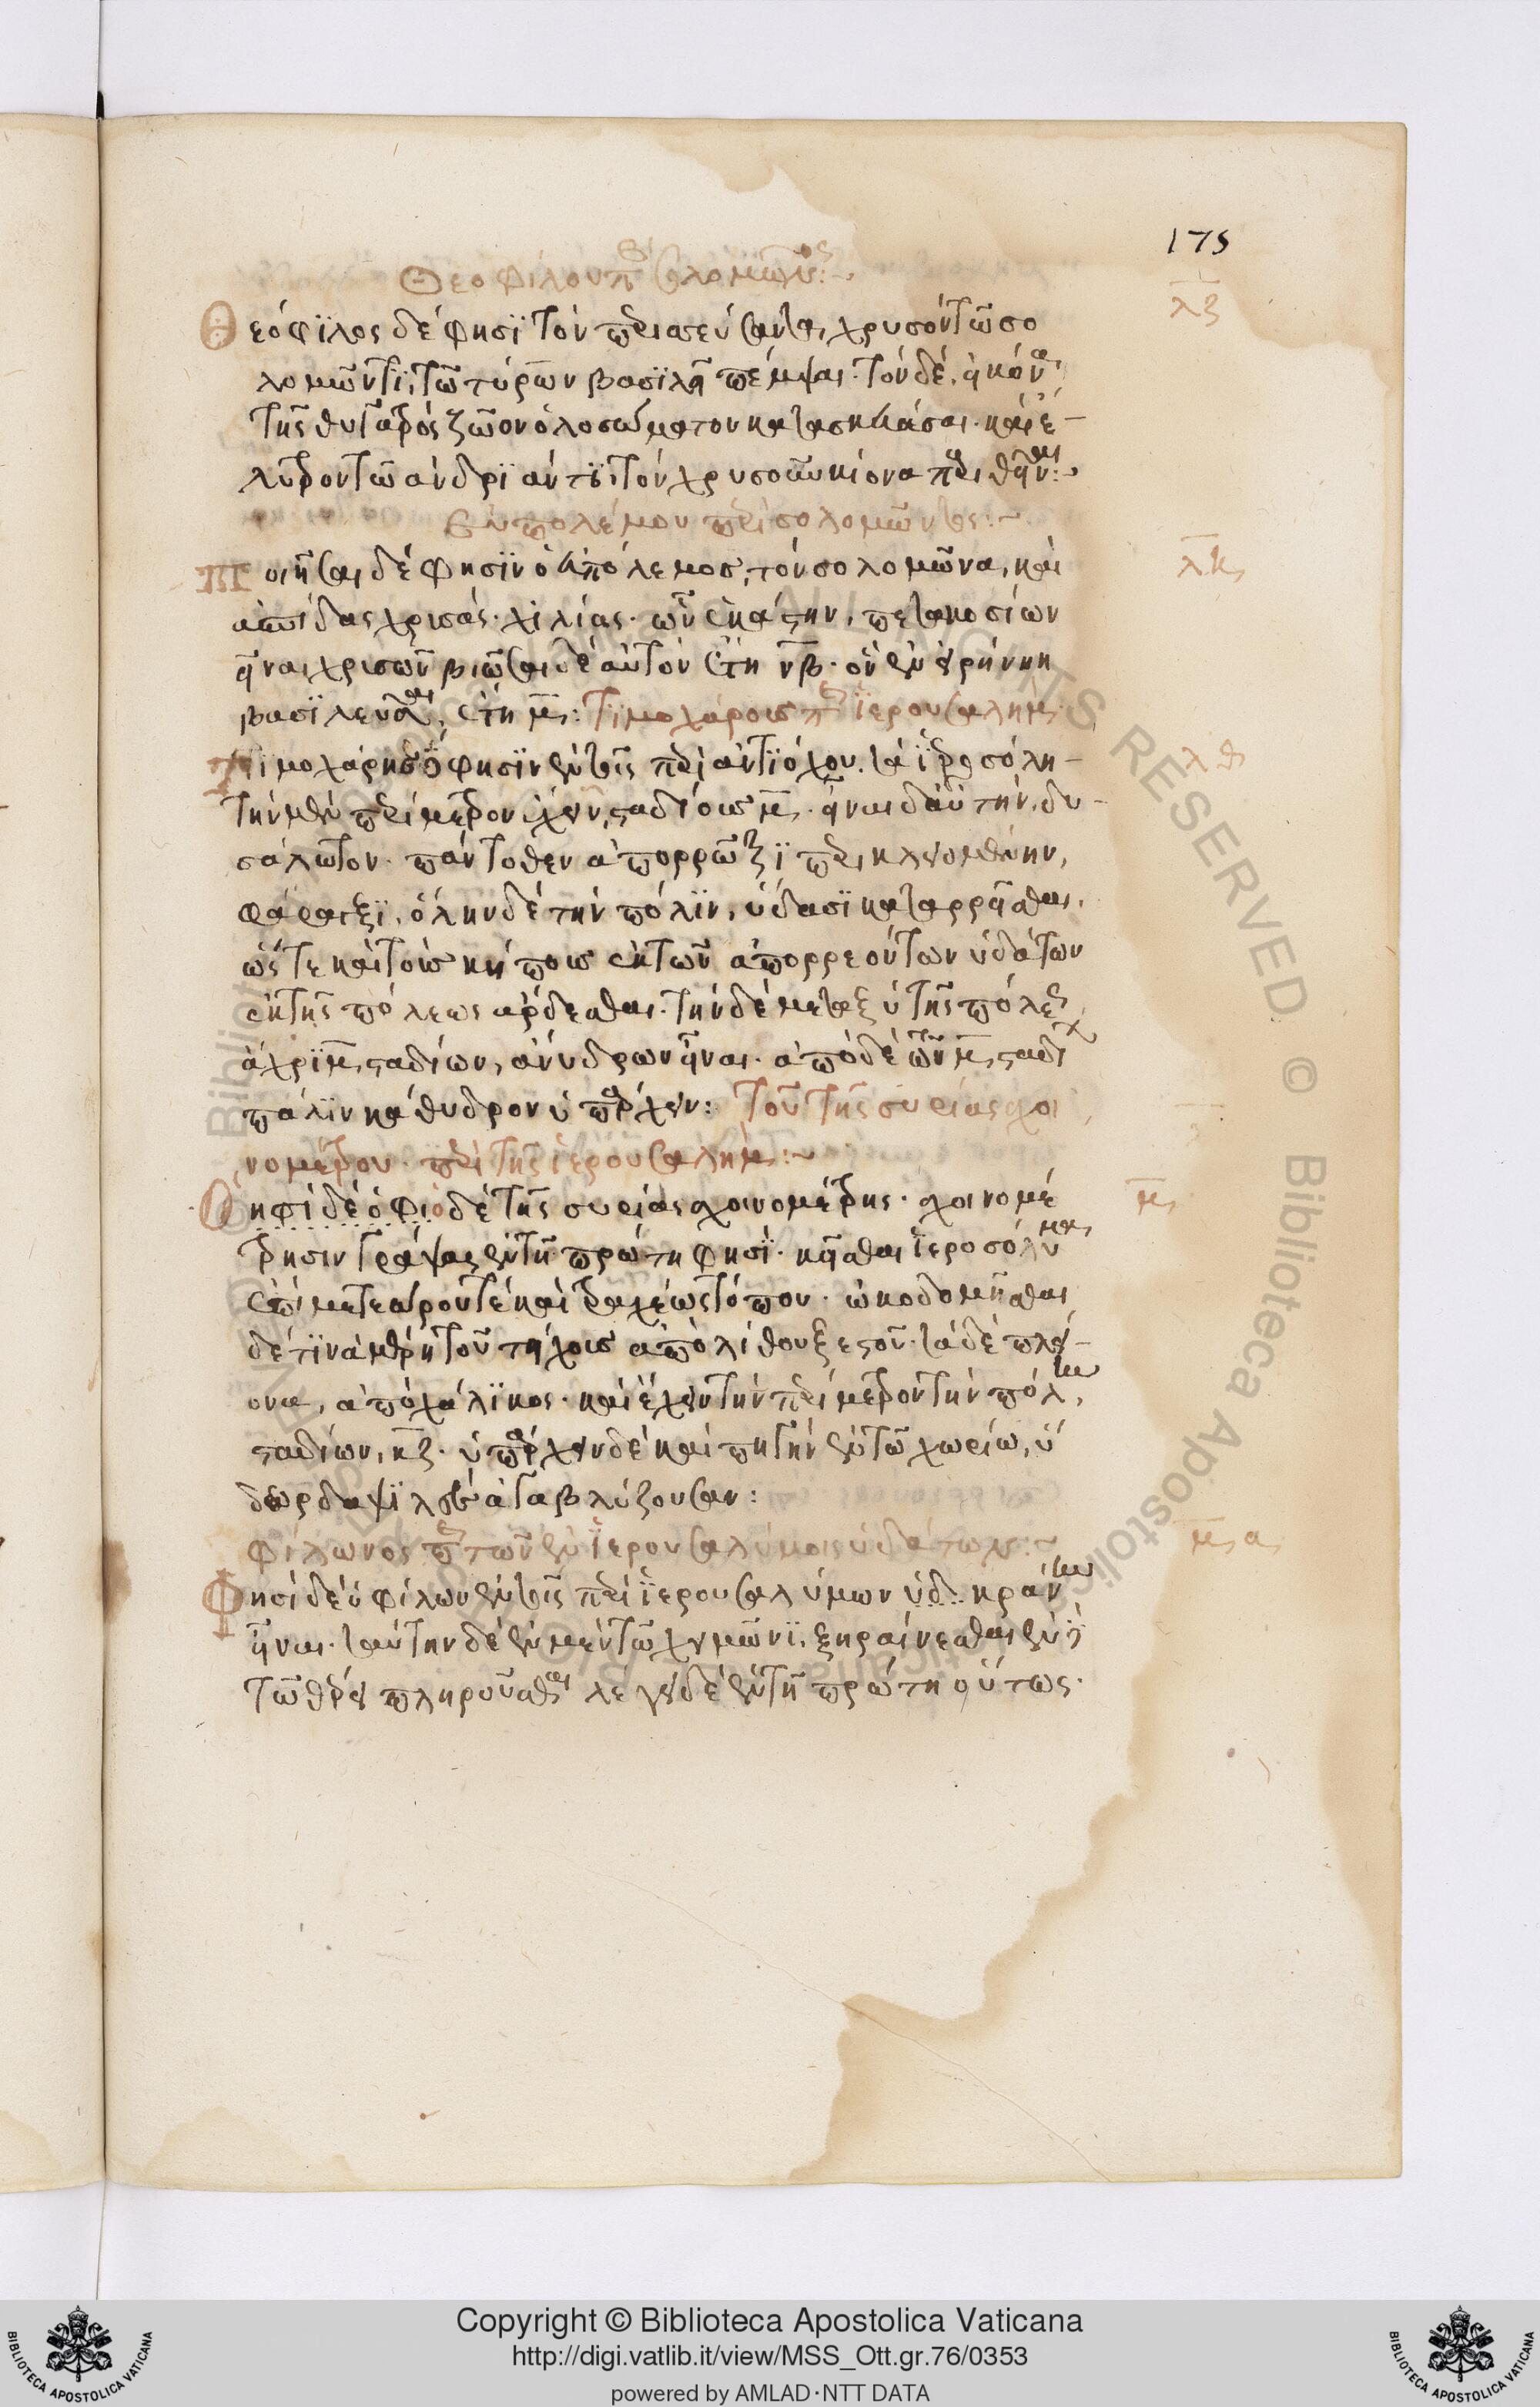 175
Θεοφίλου περὶ σολομῶντος:~
λζ
Θεόφϊλος δέ φησϊ τὸν περισεύσαντα χρυσὸν τῶ σο
λομῶντϊ, τῶ τύρων βασϊλῆ πέμψαι. τὸν δὲ, ἠκόνα
τῆς θυγατρὸς ζῶον ὁλοσώματον κατασκευάσαι. καὶ ἔ-
λυτρον τῶ ἀνδρϊάντϊ, τὸν χρυσοῦν κίονα περιθῆναι:~
Εὐπολέμου περὶ σολομῶντος:~
λη
Ποιῆσαι δέ φησϊν ὁ εὐπόλεμος, τὸν σολομῶνα, καὶ
ἀσπίδας χρισάς. χϊλίας. ὧν ἑκάστην, πεντακοσίων
ἦναι χρισῶν βιῶσαι δὲ αὐτὸν ἔτη νβ. ὧν ἐν ἠρήνη
βασϊλεῦσαι, ἔτη μ: Τϊμοχάρους περὶ ἱερουσαλήμ.
λθ
Τϊμοχάρης δέ φησϊν ἐν τοῖς περὶ ἀντϊόχου. τὰ ἱεροσόλη-
τὴν μὲν περίμετρον ἔχειν, σταδίους μ. ἦναι δ' αὐτὴν, δυ-
σάλωτον. πάντοθεν ἀπορρῶξϊ περικλειομένην,
φάραγξϊ. ὅλην δὲ τὴν πόλϊν, ὕδασϊ καταρρῆσθαι.
ὥστε καὶ τοὺς κήπους ἐκ τῶν ἀπορρεόντων ὑδάτων
ἐκ τῆς πόλεως ἄρδεσθαι. τὴν δὲ μεταξὺ τῆς πόλεως
ἄχρϊ μ σταδίων, ἄνυδρων ἦναι. ἀπὸ δὲ τῶν μ σταδί
πάλϊν κάθυδρον ὑπάρχειν: Τοῦ τῆς συρίας σχοι
νομέτρου. περὶ τῆς ἱερουσαλήμ:~
μ
Φησὶ δὲ ὁ φιο δὲ τῆς συρίας σχοινομέτρης. σχοινομέ
τρησιν γράψας ἐν τῆ πρώτη φησϊ. κῆσθαι ἱεροσόλυμα
ἐπὶ μετεώρου τὲ καὶ τραχέως τόπου. ὠκοδομῆσθαι
δὲ τϊνὰ μέρη τοῦ τήχους ἀπὸ λίθου ξεστοῦ. τὰ δὲ πλεί-
ονα, ἀπὸ χάλϊκος. καὶ ἔχειν τὴν περίμετρον τὴν πόλιν,
σταδίων, κζ. ὑπάρχειν δὲ καὶ πηγὴν ἐν τῶ χωρίω, ὕ
δωρ δαψϊλὲς ἀναβλύζουσαν:
Φίλωνος περὶ τῶν ἐν ἱερουσαλύμοις ὑδάτων:~
μα
Φησὶ δὲ ὁ φίλων ἐν τοῖς περὶ ἱερουσαλύμων ὑδ κρήνην
ἦναι. ταύτην δὲ ἐν μὲν τῶ χειμῶνϊ, ξηραίνεσθαι ἐν δὲ
τῶ θέρει πληροῦσθαι λέγει δὲ ἐν τῆ πρώτη οὕτως.
Copyright © Biblioteca Apostolica Vaticana
http://digi.vatlib.it/view/MSS_Ott.gr.76/0353
powered by AMLAD·NTT DATA
BIBLIOTECA APOSTOLICA VATICANA
BIBLIOTECA APOSTOLICA VATICANA